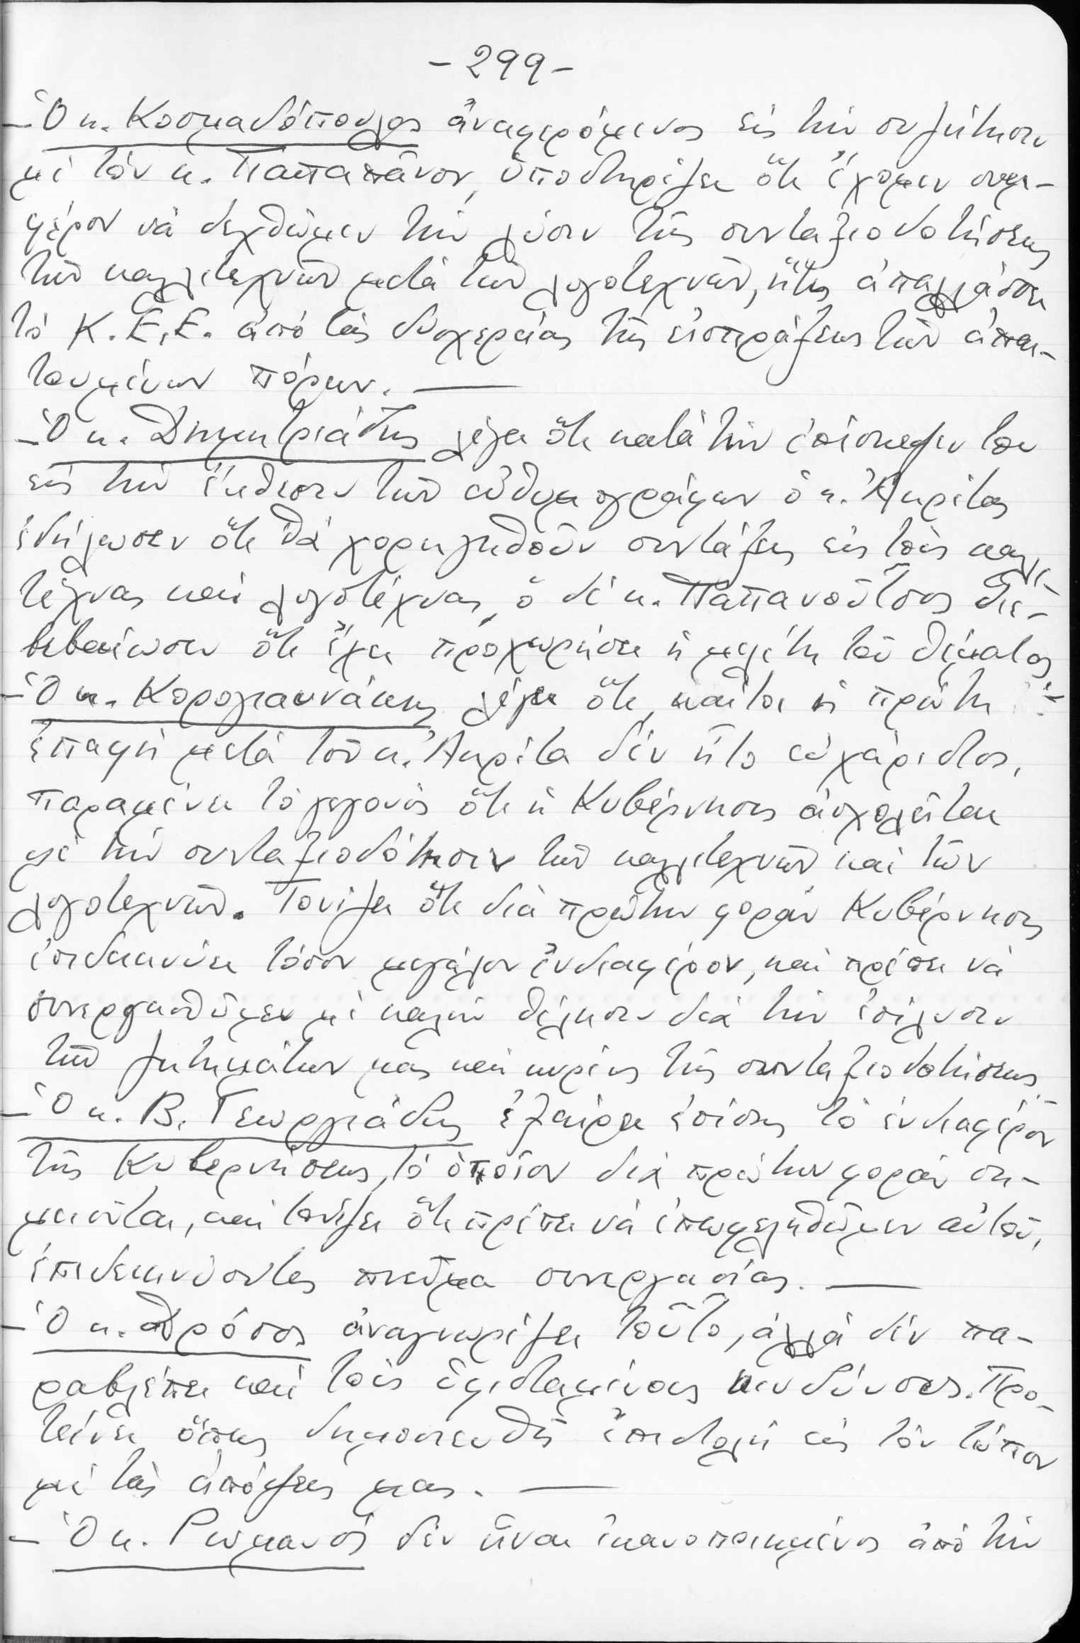 -299-
– Ὁ κ. Κοσμαδόπουλος ἀναφερόμενος εἰς τὴν συζήτησιν
μὲ τὸν κ. Παπαπᾶνον, ὑποστηρίζει ὅτι ἔχομεν συμ-
φέρον νὰ δεχθῶμεν τὴν λύσιν τῆς συνταξιοδοτήσεως
τῶν καλλιτεχνῶν μετὰ τῶν λογοτεχνῶν, ἥτις ἀπαλλάσσει
τὸ Κ.Ε.Ε. ἀπὸ τὰς δυσχερείας τῆς εἰσπράξεως τῶν ἀπαι-
τουμένων πόρων. —
– Ὁ κ. Δημητριάδης λέγει ὅτι κατὰ τὴν ἐπίσκεψιν του
εἰς τὴν ἔκθεσιν τῶν εὐθυμογράφων ὁ κ. Ἀκρίτας
ἐδήλωσεν ὅτι θὰ χορηγηθοῦν συντάξεις εἰς τοὺς καλλι-
τέχνας καὶ λογοτέχνας, ὁ δὲ κ. Παπανοῦτσος διε-
βεβαίωσεν ὅτι ἔχει προχωρήσει ἡ μελέτη τοῦ θέματος.
– Ὁ κ. Κορογιαννάκης λέγει ὅτι, καίτοι ἡ πρώτη
ἐπαφὴ μετὰ τοῦ κ. Ἀκρίτα δὲν ἦτο εὐχάριστος,
παραμένει τὸ γεγονὸς ὅτι ἡ Κυβέρνησις ἀσχολεῖται
μὲ τὴν συνταξιοδότησιν τῶν καλλιτεχνῶν καὶ τῶν
λογοτεχνῶν. Τονίζει ὅτι διὰ πρώτην φορὰν Κυβέρνησις
ἐπιδεικνύει τόσον μεγάλον ἐνδιαφέρον, καὶ πρέπει νὰ
συνεργασθῶμεν μὲ καλὴν θέλησιν διὰ τὴν ἐπίλυσιν
τῶν ζητημάτων μας καὶ κυρίως τῆς συνταξιοδοτήσεως.
– Ὁ κ. Β. Γεωργιάδης ἐξαίρει ἐπίσης τὸ ἐνδιαφέρον
τῆς Κυβερνήσεως, τὸ ὁποῖον διὰ πρώτην φορὰν ση-
μειοῦται, καὶ τονίζει ὅτι πρέπει νὰ ἐπωφεληθῶμεν αὐτοῦ,
ἐπιδεικνύοντες πνεῦμα συνεργασίας. —
– Ὁ κ. Δρόσος ἀναγνωρίζει τοῦτο, ἀλλὰ δὲν πα-
ραβλέπει καὶ τοὺς ὑφισταμένους κινδύνους. Προ-
τείνει ὅπως δημοσιευθῇ ἐπιστολὴ εἰς τὸν τύπον
μὲ τὰς ἀπόψεις μας. —
– Ὁ κ. Ρωμανός δὲν εἶναι ἱκανοποιημένος ἀπὸ τὴν